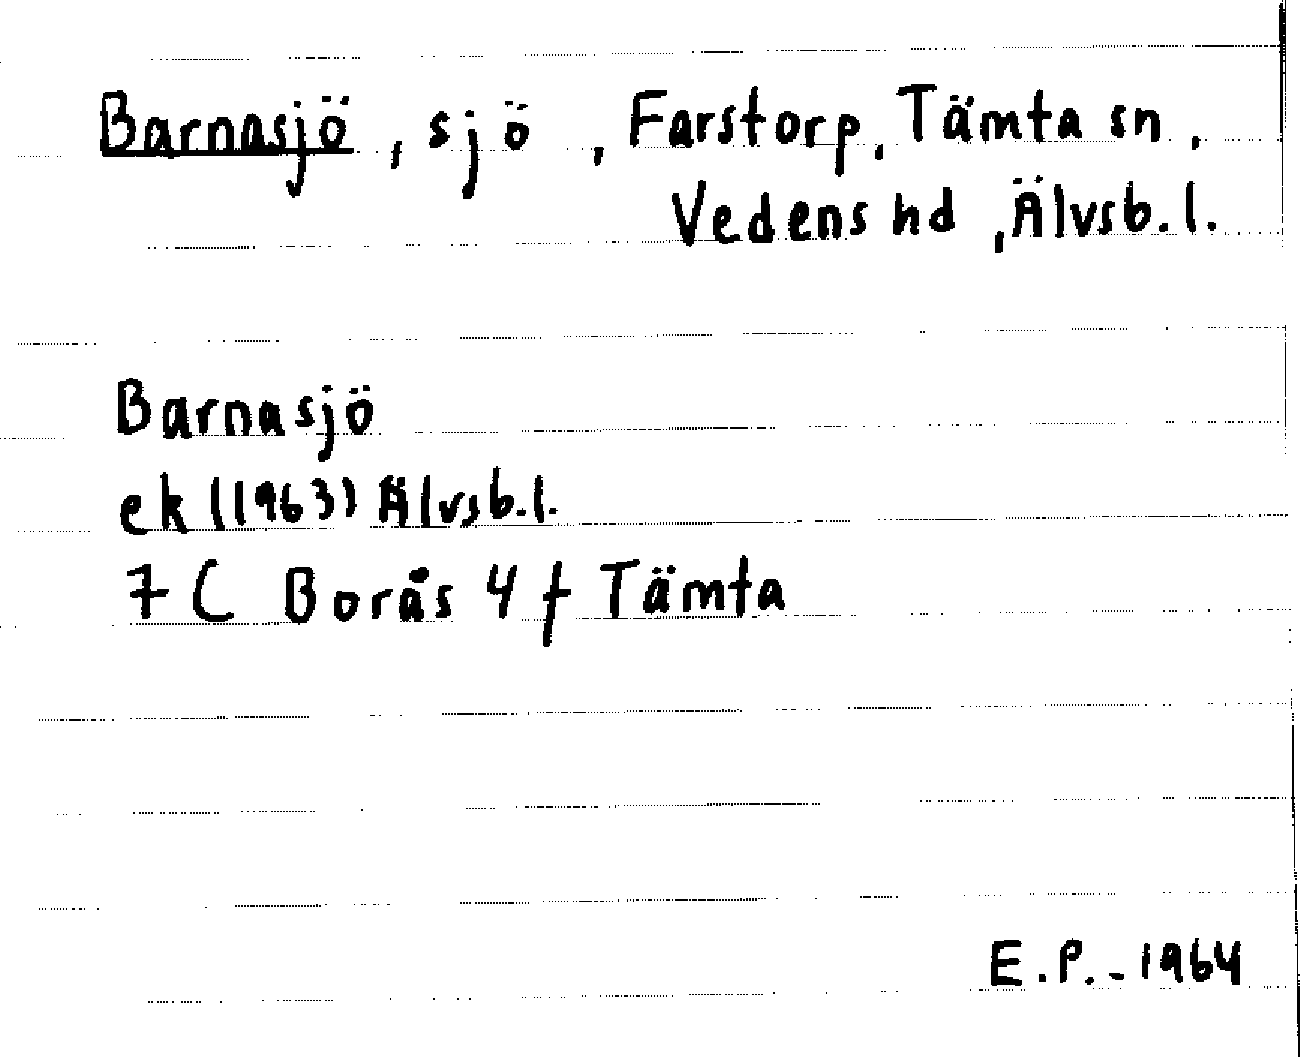 Barnasjö, sjö, Farstorp, Tämta sn,
Vedens hd, Älvsb.l.
Barnasjö
ek (1963) Älvsb.l.
7 C Borås 4 f Tämta
E.P.-1964